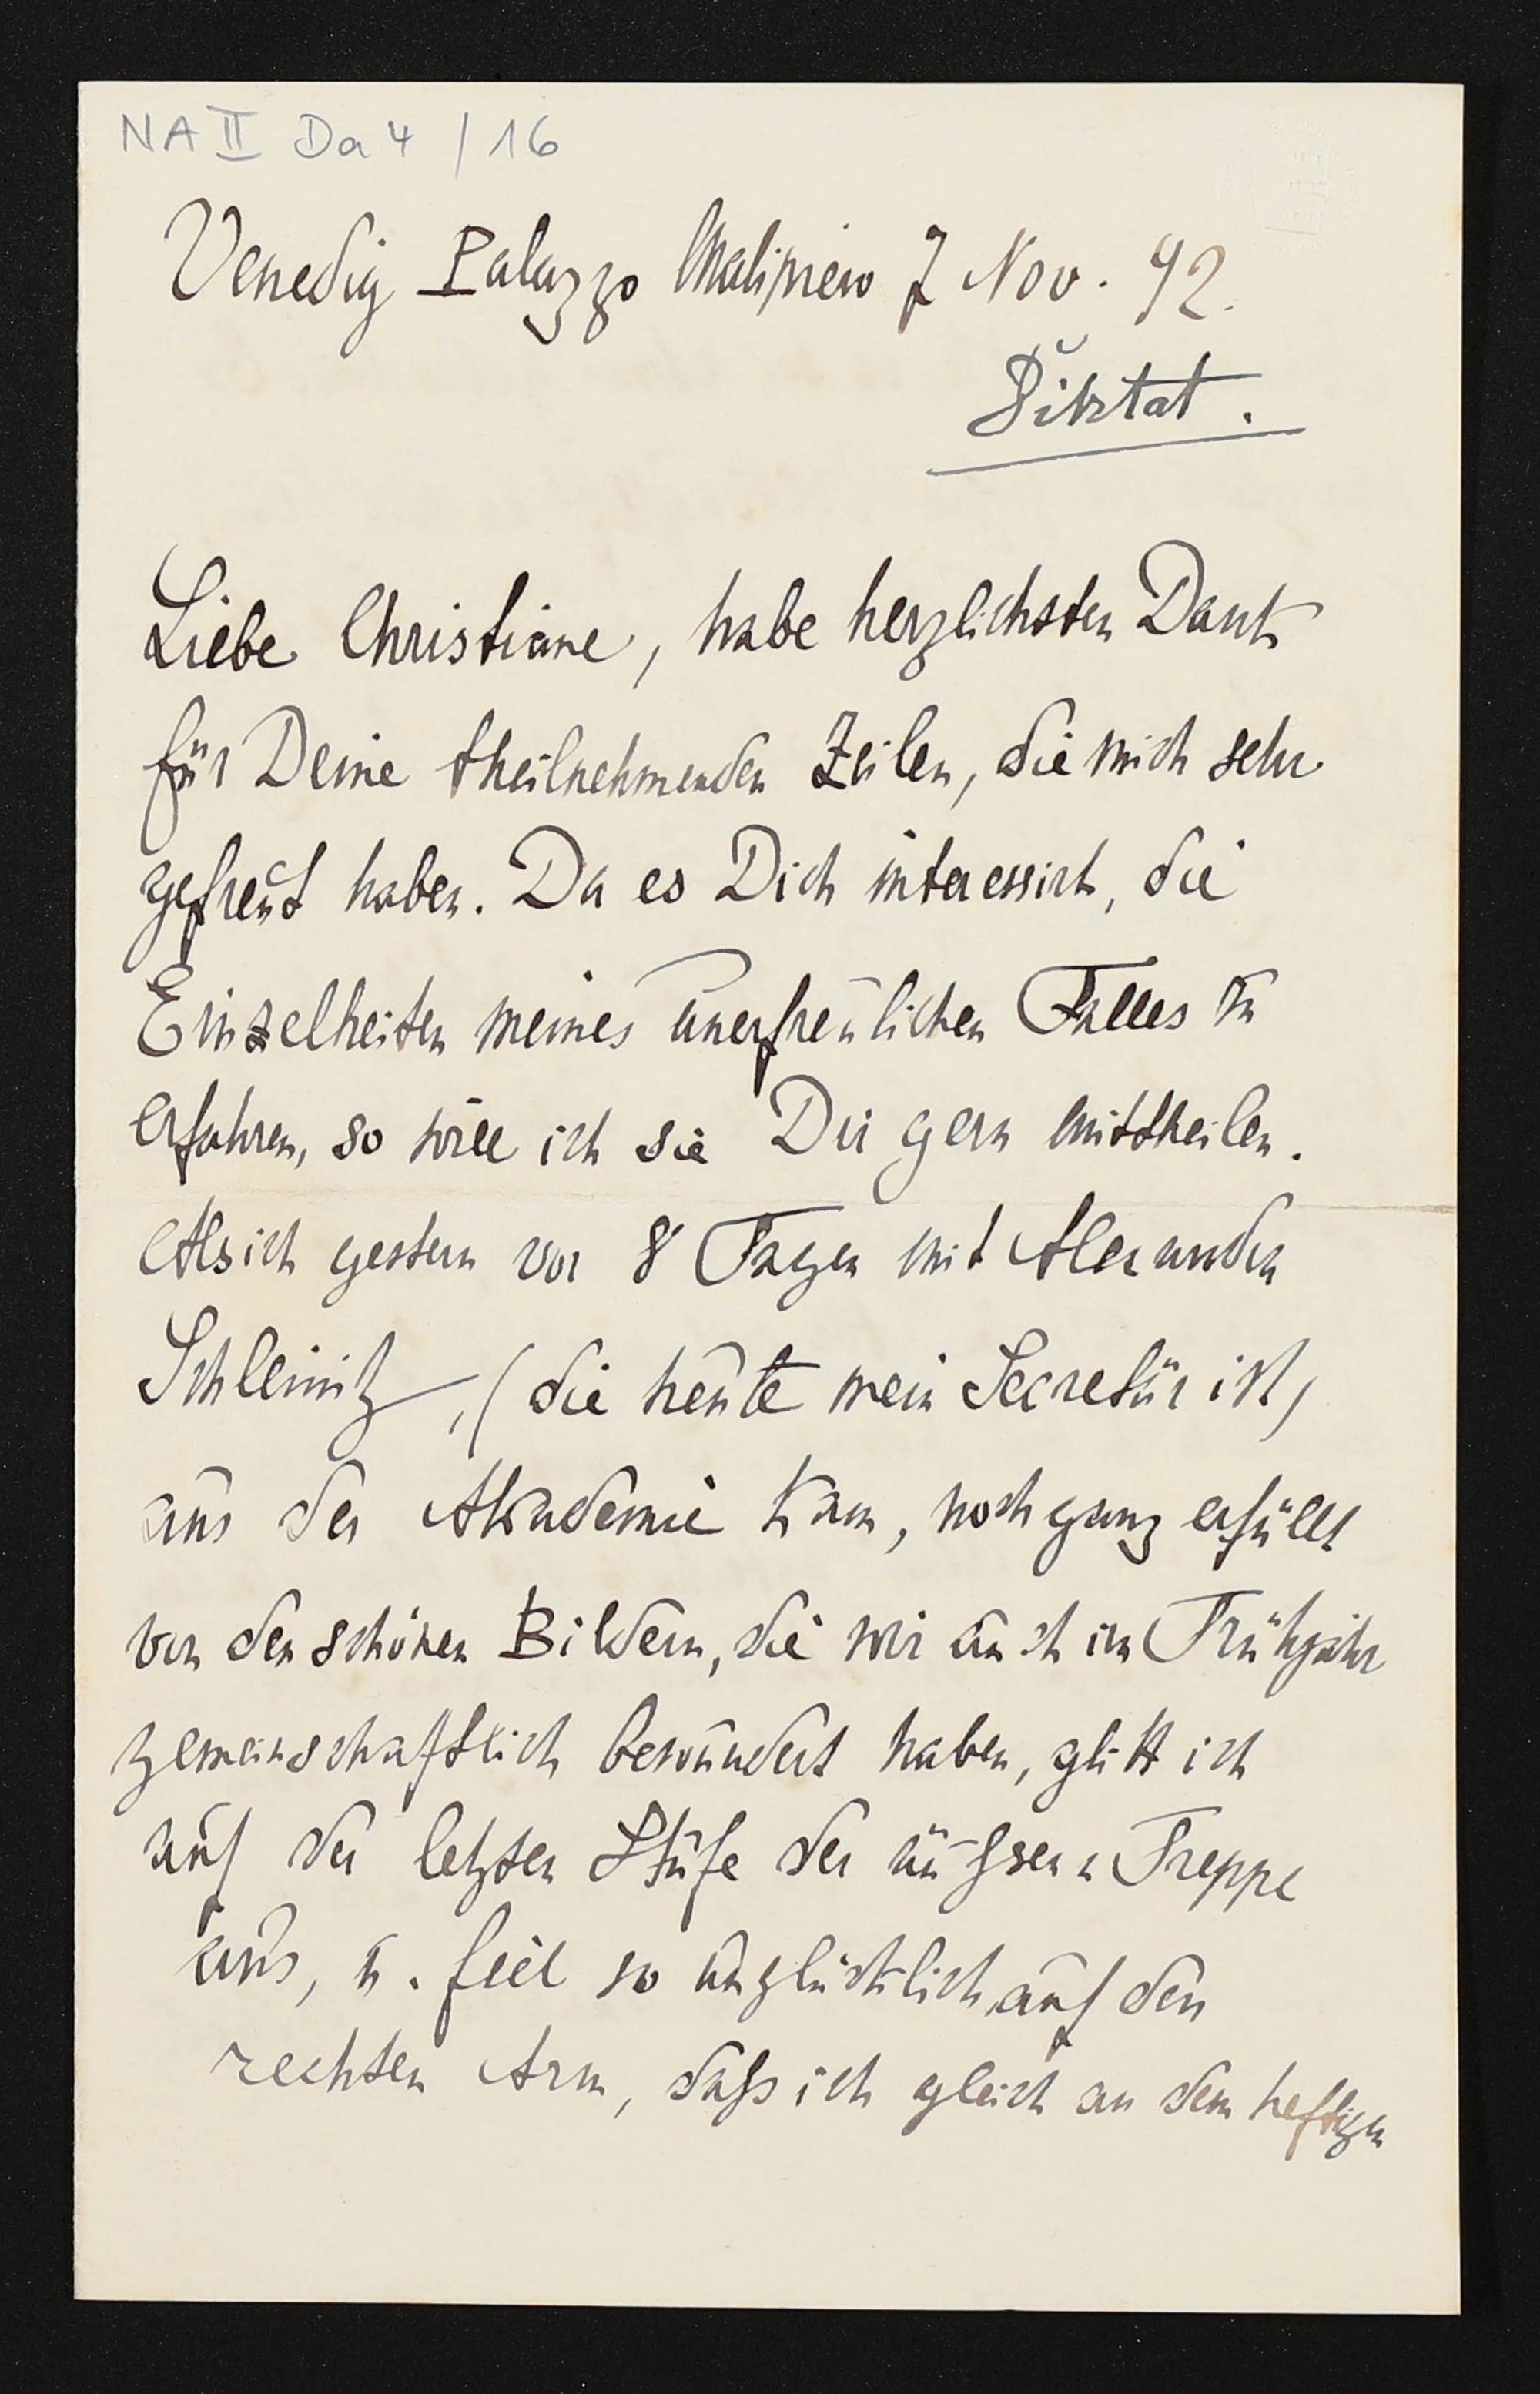 NA II Da 4 / 16
Venedig Palazzo Malipiero 7 Nov. 92.
Diktat.
Liebe Christiane, habe herzlichsten Dank
für Deine theilnehmenden Zeilen, die mich sehr
gefreut haben. Da es Dich interessirt, die
Einzelheiten meines unerfreulichen Falles zu
erfahren, so will ich sie Dir gern mittheilen.
Als ich gestern vor 8 Tagen mit Alexandra
Schleinitz, (die heute mein Secretär ist)
aus der Akademie kam, noch ganz erfüllt
von den schönen Bildern, die wir auch im Frühjahr
gemeinschaftlich bewundert haben, glitt ich
auf der letzten Stufe der äußern Treppe
aus, u. fiel so unglücklich auf den
rechten Arm, daß ich gleich an dem heftigen